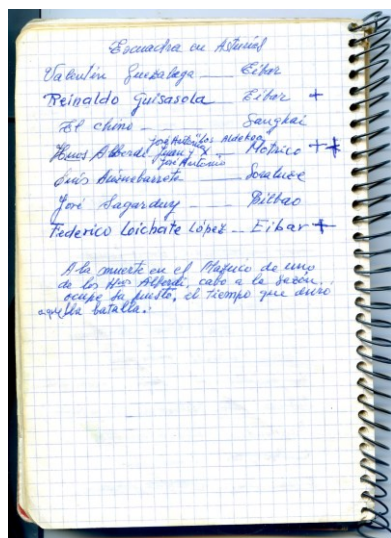 Escuadra en Asturias
Valentín Guezalaga — Eibar
Reinaldo Guisasola — Eibar +
El chino — Sanghai
José Antonio Aldekoa
Hnos Alberdi Juan y X — Motrico ++
José Antonio
Luis — Soraluce
José Sagarduy — Bilbao
Federico Loichate López — Eibar +
A la muerte en el Mazuco de uno
de los Hnos Alberdi, cabo a la sazón,
ocupe su puesto, el tiempo que duró
aquella batalla.